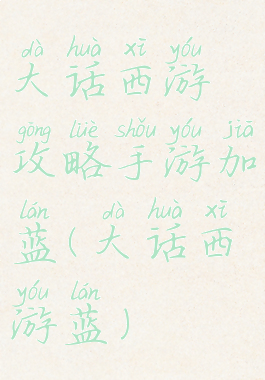 dà huà xī yóu
大话西游
gōng lüè shǒu yóu jiā
攻略手游加
lán dà huà xī
蓝(大话西
yóu lán
游蓝)